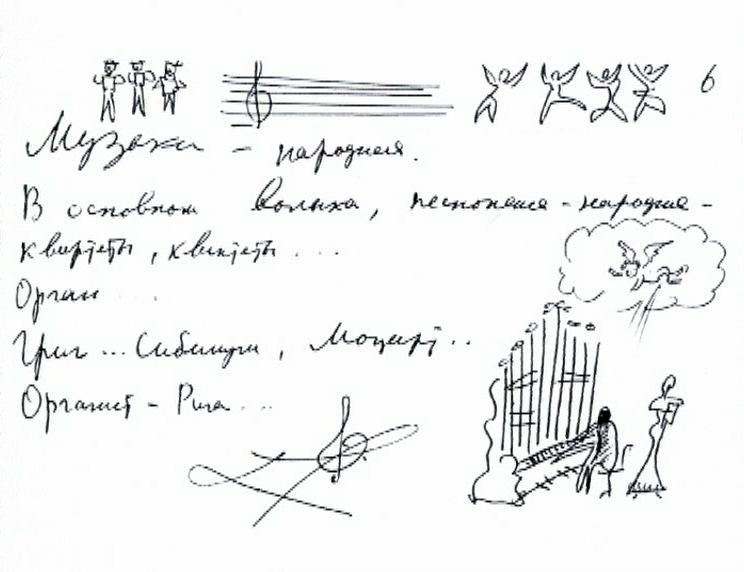 6
Музыка - народная.
В основном волынка, песнопения - народные -
квартеты, квинтеты ...
Орган ...
Григ ... Сибелиус, Моцарт ..
Органист - Рига ...